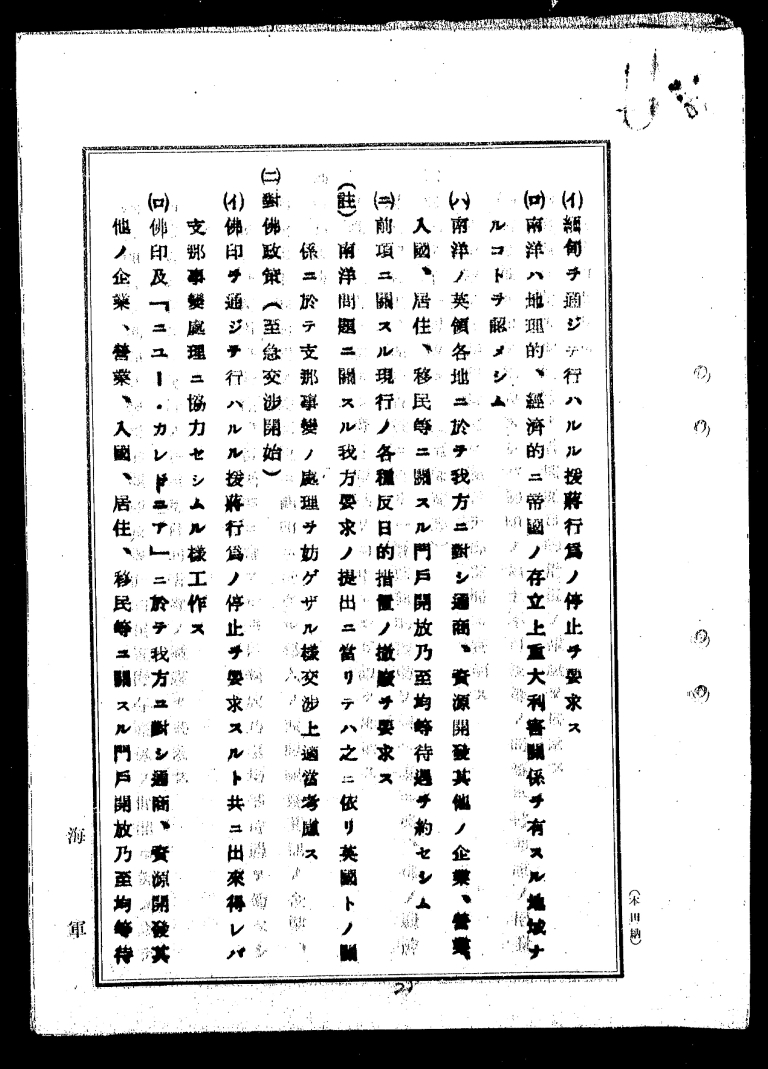 (イ)緬甸ヲ通ジテ行ハルル援蔣行爲ノ停止ヲ要求ス
(ロ)南洋ハ地理的、經濟的ニ帝國ノ存立上重大利害關係ヲ有スル地域ナ
ルコトヲ認メシム
(ハ)南洋ノ英領各地ニ於テ我方ニ對シ通商、資源開發其他ノ企業、營業、
入國、居住、移民等ニ關スル門戶開放乃至均等待遇ヲ約セシム
(ニ)前項ニ關スル現行ノ各種反日的措置ノ撤廢ヲ要求ス
(註)南洋問題ニ關スル我方要求ノ提出ニ當リテハ之ニ依リ英國トノ關
係ニ於テ支那事變ノ處理ヲ妨ゲザル樣交涉上適當考慮ス
(二)對佛政策(至急交涉開始)
(イ)佛印ヲ通ジテ行ハルル援蔣行爲ノ停止ヲ要求スルト共ニ出來得レバ
支那事變處理ニ協力セシムル樣工作ス
(ロ)佛印及「ニユー・カレドニア」ニ於テ我方ニ對シ通商、資源開發其
他ノ企業、營業、入國、居住、移民等ニ關スル門戶開放乃至均等待
海軍
(本田納)